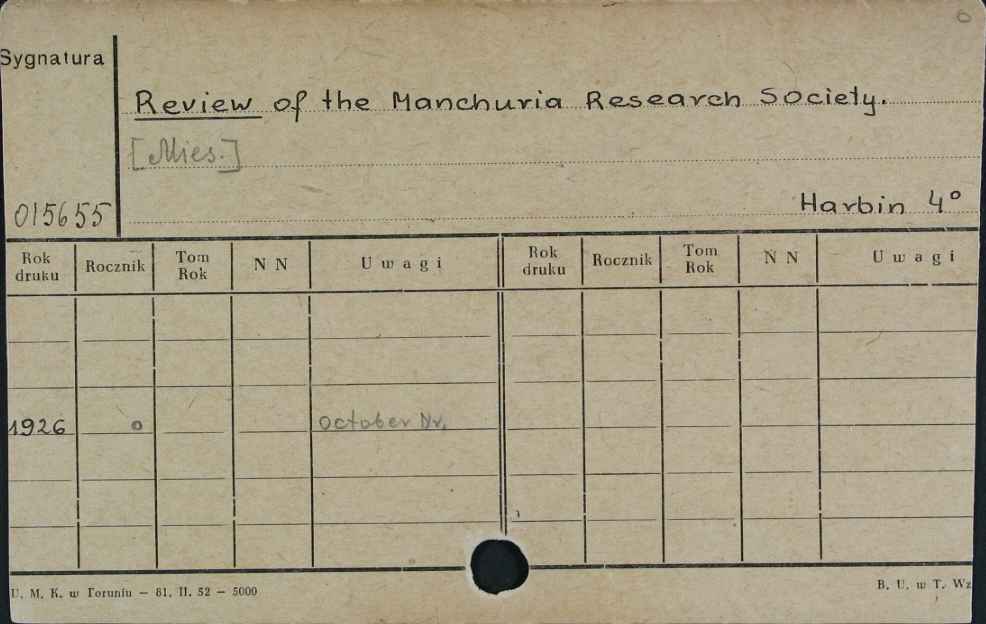 O
Sygnatura
Review of the Manchuria Research Society.
[Mies.]
015655
Harbin 4º
Rok druku Rocznik Tom Rok N N U w a g i Rok druku Rocznik Tom Rok N N U w a g i
1926 o october Nr.
U. M. K. w Toruniu — 81. II. 52 — 5000
B. U. w T. Wz